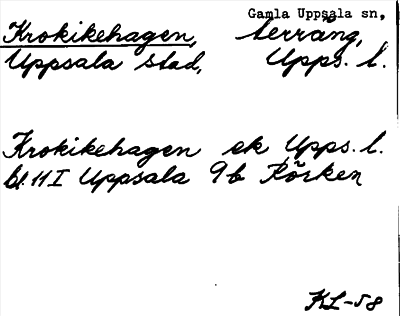 Gamla Uppsala sn,
Krokikehagen, terräng,
Uppsala stad, Upps. l.
Krokikehagen ek Upps. l.
bl. 11 I Uppsala 9b Rörken
KL-58